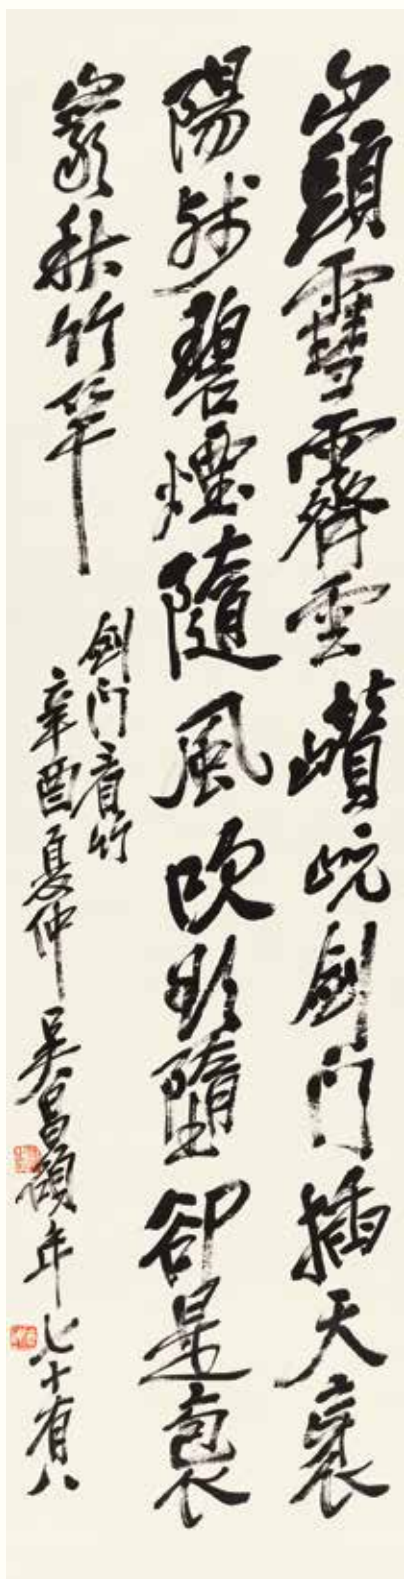 山頭雪霽雲巑岏劍門插天衰
陽殘碧煙隨風吹影墮卻是
家秋竹竿
劍門看竹
辛酉夏仲吳昌碩年七十有八